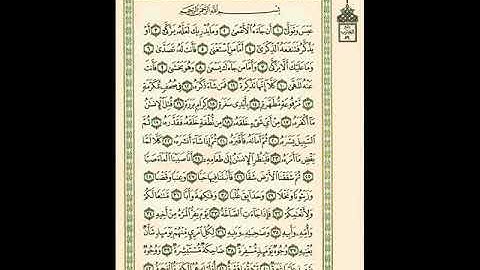 بِسْمِ اللَّهِ الرَّحْمَٰنِ الرَّحِيمِ
عَبَسَ وَتَوَلَّىٰ ١ أَن جَآءَهُ ٱلْأَعْمَىٰ ٢ وَمَا يُدْرِيكَ لَعَلَّهُۥ يَزَّكَّىٰ ٣ أَوْ
يَذَّكَّرُ فَتَنفَعَهُ ٱلذِّكْرَىٰٓ ٤ أَمَّا مَنِ ٱسْتَغْنَىٰ ٥ فَأَنتَ لَهُۥ تَصَدَّىٰ ٦
وَمَا عَلَيْكَ أَلَّا يَزَّكَّىٰ ٧ وَأَمَّا مَن جَآءَكَ يَسْعَىٰ ٨ وَهُوَ يَخْشَىٰ ٩ فَأَنتَ
عَنْهُ تَلَهَّىٰ ١٠ كَلَّآ إِنَّهَا تَذْكِرَةٌ ١١ فَمَن شَآءَ ذَكَرَهُۥ ١٢ فِى صُحُفٍ مُّكَرَّمَةٍ
١٣ مَّرْفُوعَةٍ مُّطَهَّرَةٍۭ ١٤ بِأَيْدِى سَفَرَةٍ ١٥ كِرَامٍۭ بَرَرَةٍ ١٦ قُتِلَ ٱلْإِنسَٰنُ
مَآ أَكْفَرَهُۥ ١٧ مِنْ أَىِّ شَىْءٍ خَلَقَهُۥ ١٨ مِن نُّطْفَةٍ خَلَقَهُۥ فَقَدَّرَهُۥ ١٩ ثُمَّ
ٱلسَّبِيلَ يَسَّرَهُۥ ٢٠ ثُمَّ أَمَاتَهُۥ فَأَقْبَرَهُۥ ٢١ ثُمَّ إِذَا شَآءَ أَنشَرَهُۥ ٢٢ كَلَّا لَمَّا
يَقْضِ مَآ أَمَرَهُۥ ٢٣ فَلْيَنظُرِ ٱلْإِنسَٰنُ إِلَىٰ طَعَامِهِۦٓ ٢٤ أَنَّا صَبَبْنَا ٱلْمَآءَ صَبًّا
٢٥ ثُمَّ شَقَقْنَا ٱلْأَرْضَ شَقًّا ٢٦ فَأَنۢبَتْنَا فِيهَا حَبًّا ٢٧ وَعِنَبًا وَقَضْبًا ٢٨
وَزَيْتُونًا وَنَخْلًا ٢٩ وَحَدَآئِقَ غُلْبًا ٣٠ وَفَٰكِهَةً وَأَبًّا ٣١ مَّتَٰعًا لَّكُمْ
وَلِأَنْعَٰمِكُمْ ٣٢ فَإِذَا جَآءَتِ ٱلصَّآخَّةُ ٣٣ يَوْمَ يَفِرُّ ٱلْمَرْءُ مِنْ أَخِيهِ ٣٤
وَأُمِّهِۦ وَأَبِيهِ ٣٥ وَصَٰحِبَتِهِۦ وَبَنِيهِ ٣٦ لِكُلِّ ٱمْرِئٍ مِّنْهُمْ يَوْمَئِذٍ شَأْنٌ
يُغْنِيهِ ٣٧ وُجُوهٌ يَوْمَئِذٍ مُّسْفِرَةٌ ٣٨ ضَاحِكَةٌ مُّسْتَبْشِرَةٌ ٣٩ وَوُجُوهٌ